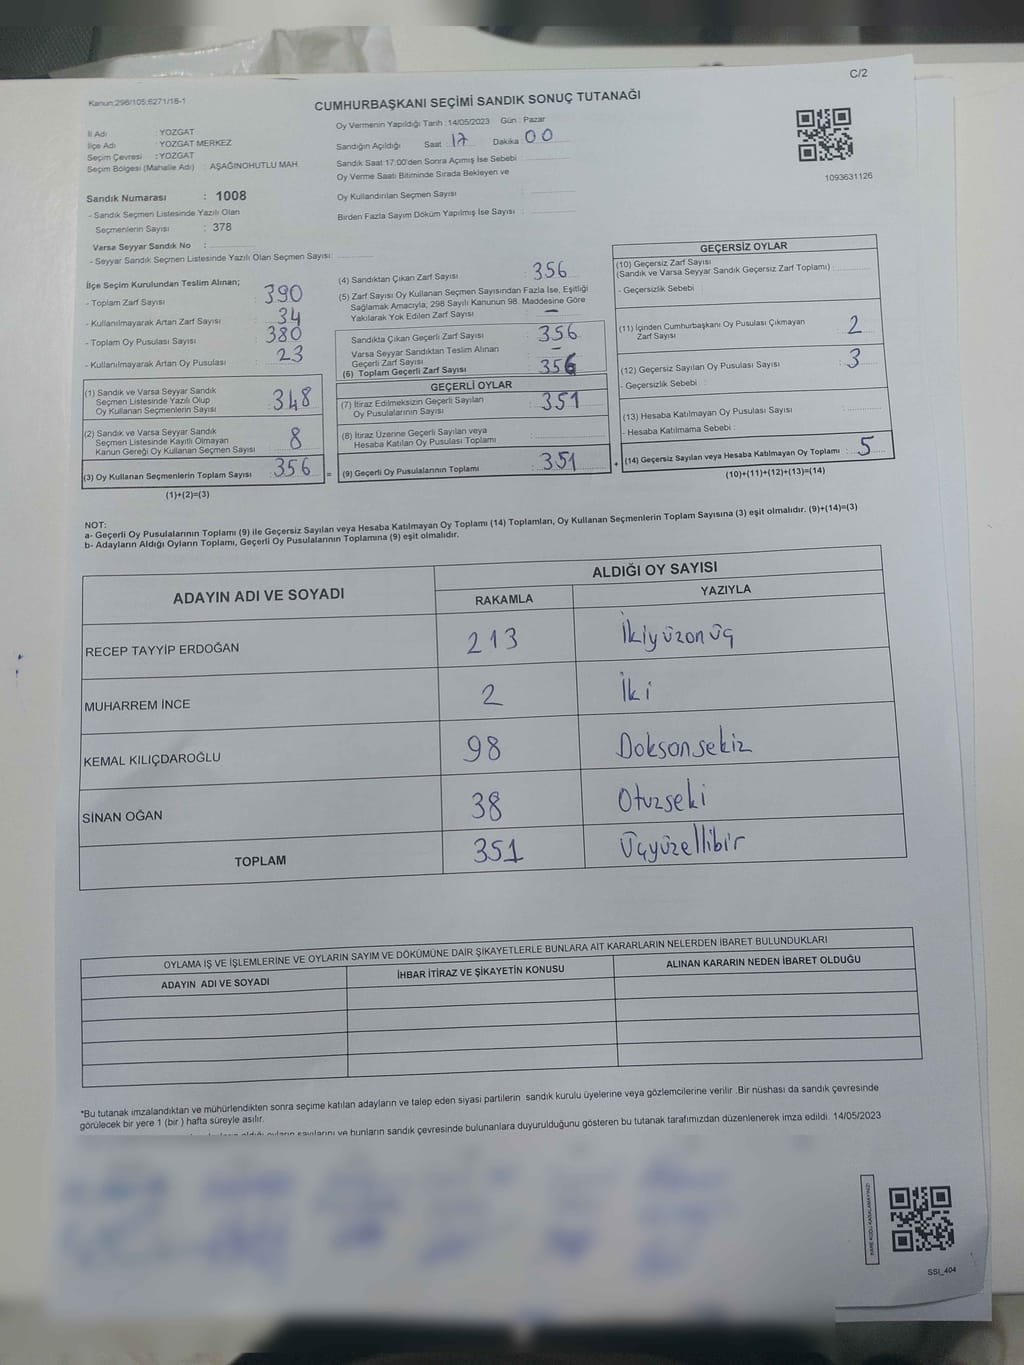 C/2
Kanun:298/105;6271/18-1
CUMHURBAŞKANI SEÇİMİ SANDIK SONUÇ TUTANAĞI
İl Adı : YOZGAT
İlçe Adı : YOZGAT MERKEZ
Seçim Çevresi : YOZGAT
Seçim Bölgesi (Mahalle Adı) : AŞAĞINOHUTLU MAH.
Sandık Numarası : 1008
- Sandık Seçmen Listesinde Yazılı Olan
Seçmenlerin Sayısı : 378
Varsa Seyyar Sandık No :
- Seyyar Sandık Seçmen Listesinde Yazılı Olan Seçmen Sayısı:
Oy Vermenin Yapıldığı Tarih : 14/05/2023 Gün : Pazar
Sandığın Açıldığı Saat 17 Dakika 00
Sandık Saat 17:00'den Sonra Açımış İse Sebebi
Oy Verme Saati Bitiminde Sırada Bekleyen ve
Oy Kullandırılan Seçmen Sayısı :
Birden Fazla Sayım Döküm Yapılmış İse Sayısı :
1093631126
İlçe Seçim Kurulundan Teslim Alınan;
- Toplam Zarf Sayısı : 390
- Kullanılmayarak Artan Zarf Sayısı : 34
- Toplam Oy Pusulası Sayısı : 380
- Kullanılmayarak Artan Oy Pusulası : 23
(1) Sandık ve Varsa Seyyar Sandık
Seçmen Listesinde Yazılı Olup
Oy Kullanan Seçmenlerin Sayısı : 348
(2) Sandık ve Varsa Seyyar Sandık
Seçmen Listesinde Kayıtlı Olmayan
Kanun Gereği Oy Kullanan Seçmen Sayısı : 8
(3) Oy Kullanan Seçmenlerin Toplam Sayısı : 356 =
(1)+(2)=(3)
(4) Sandıktan Çıkan Zarf Sayısı : 356
(5) Zarf Sayısı Oy Kullanan Seçmen Sayısından Fazla İse, Eşitliği
Sağlamak Amacıyla, 298 Sayılı Kanunun 98. Maddesine Göre
Yakılarak Yok Edilen Zarf Sayısı : —
Sandıkta Çıkan Geçerli Zarf Sayısı : 356
Varsa Seyyar Sandıktan Teslim Alınan
Geçerli Zarf Sayısı : –
(6) Toplam Geçerli Zarf Sayısı : 356
GEÇERLİ OYLAR
(7) İtiraz Edilmeksizin Geçerli Sayılan
Oy Pusulalarının Sayısı : 351
(8) İtiraz Üzerine Geçerli Sayılan veya
Hesaba Katılan Oy Pusulası Toplamı :
(9) Geçerli Oy Pusulalarının Toplamı : 351 +
GEÇERSİZ OYLAR
(10) Geçersiz Zarf Sayısı
(Sandık ve Varsa Seyyar Sandık Geçersiz Zarf Toplamı) :
- Geçersizlik Sebebi :
(11) İçinden Cumhurbaşkanı Oy Pusulası Çıkmayan
Zarf Sayısı : 2
(12) Geçersiz Sayılan Oy Pusulası Sayısı : 3
- Geçersizlik Sebebi :
(13) Hesaba Katılmayan Oy Pusulası Sayısı :
- Hesaba Katılmama Sebebi :
(14) Geçersiz Sayılan veya Hesaba Katılmayan Oy Toplamı : 5
(10)+(11)+(12)+(13)=(14)
NOT:
a- Geçerli Oy Pusulalarının Toplamı (9) ile Geçersiz Sayılan veya Hesaba Katılmayan Oy Toplamı (14) Toplamları, Oy Kullanan Seçmenlerin Toplam Sayısına (3) eşit olmalıdır. (9)+(14)=(3)
b- Adayların Aldığı Oyların Toplamı, Geçerli Oy Pusulalarının Toplamına (9) eşit olmalıdır.
ADAYIN ADI VE SOYADI ALDIĞI OY SAYISI
RAKAMLA YAZIYLA
RECEP TAYYİP ERDOĞAN 213 İkiyüzonüç
MUHARREM İNCE 2 İki
KEMAL KILIÇDAROĞLU 98 Doksonsekiz
SİNAN OĞAN 38 Otuzseki
TOPLAM 351 Üçyüzellibir
OYLAMA İŞ VE İŞLEMLERİNE VE OYLARIN SAYIM VE DÖKÜMÜNE DAİR ŞİKAYETLERLE BUNLARA AİT KARARLARIN NELERDEN İBARET BULUNDUKLARI
ADAYIN ADI VE SOYADI İHBAR İTİRAZ VE ŞİKAYETİN KONUSU ALINAN KARARIN NEDEN İBARET OLDUĞU
*Bu tutanak imzalandıktan ve mühürlendikten sonra seçime katılan adayların ve talep eden siyasi partilerin sandık kurulu üyelerine veya gözlemcilerine verilir .Bir nüshası da sandık çevresinde
görülecek bir yere 1 (bir ) hafta süreyle asılır.
aldığı oyların sayılarını ve bunların sandık çevresinde bulunanlara duyurulduğunu gösteren bu tutanak tarafımızdan düzenlenerek imza edildi. 14/05/2023
SSI_404